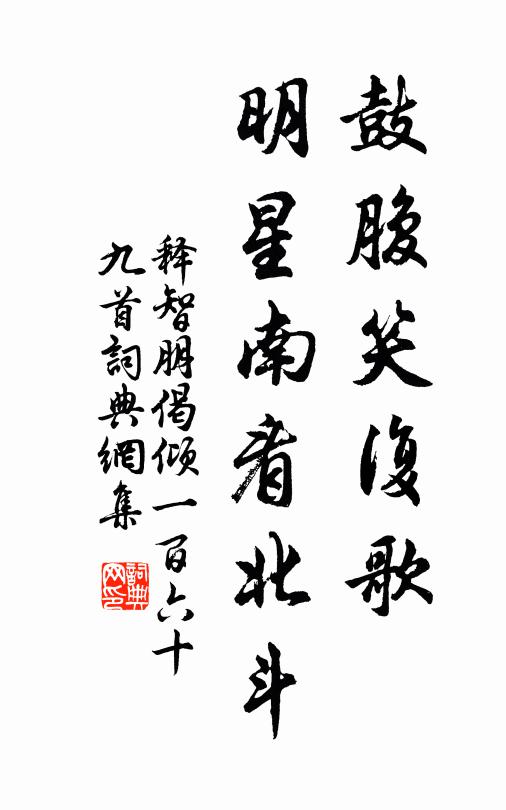 鼓腹笑復歌
明星南看北斗
释智朋偈倾一百六十
九首詞典網集
詞典
网印